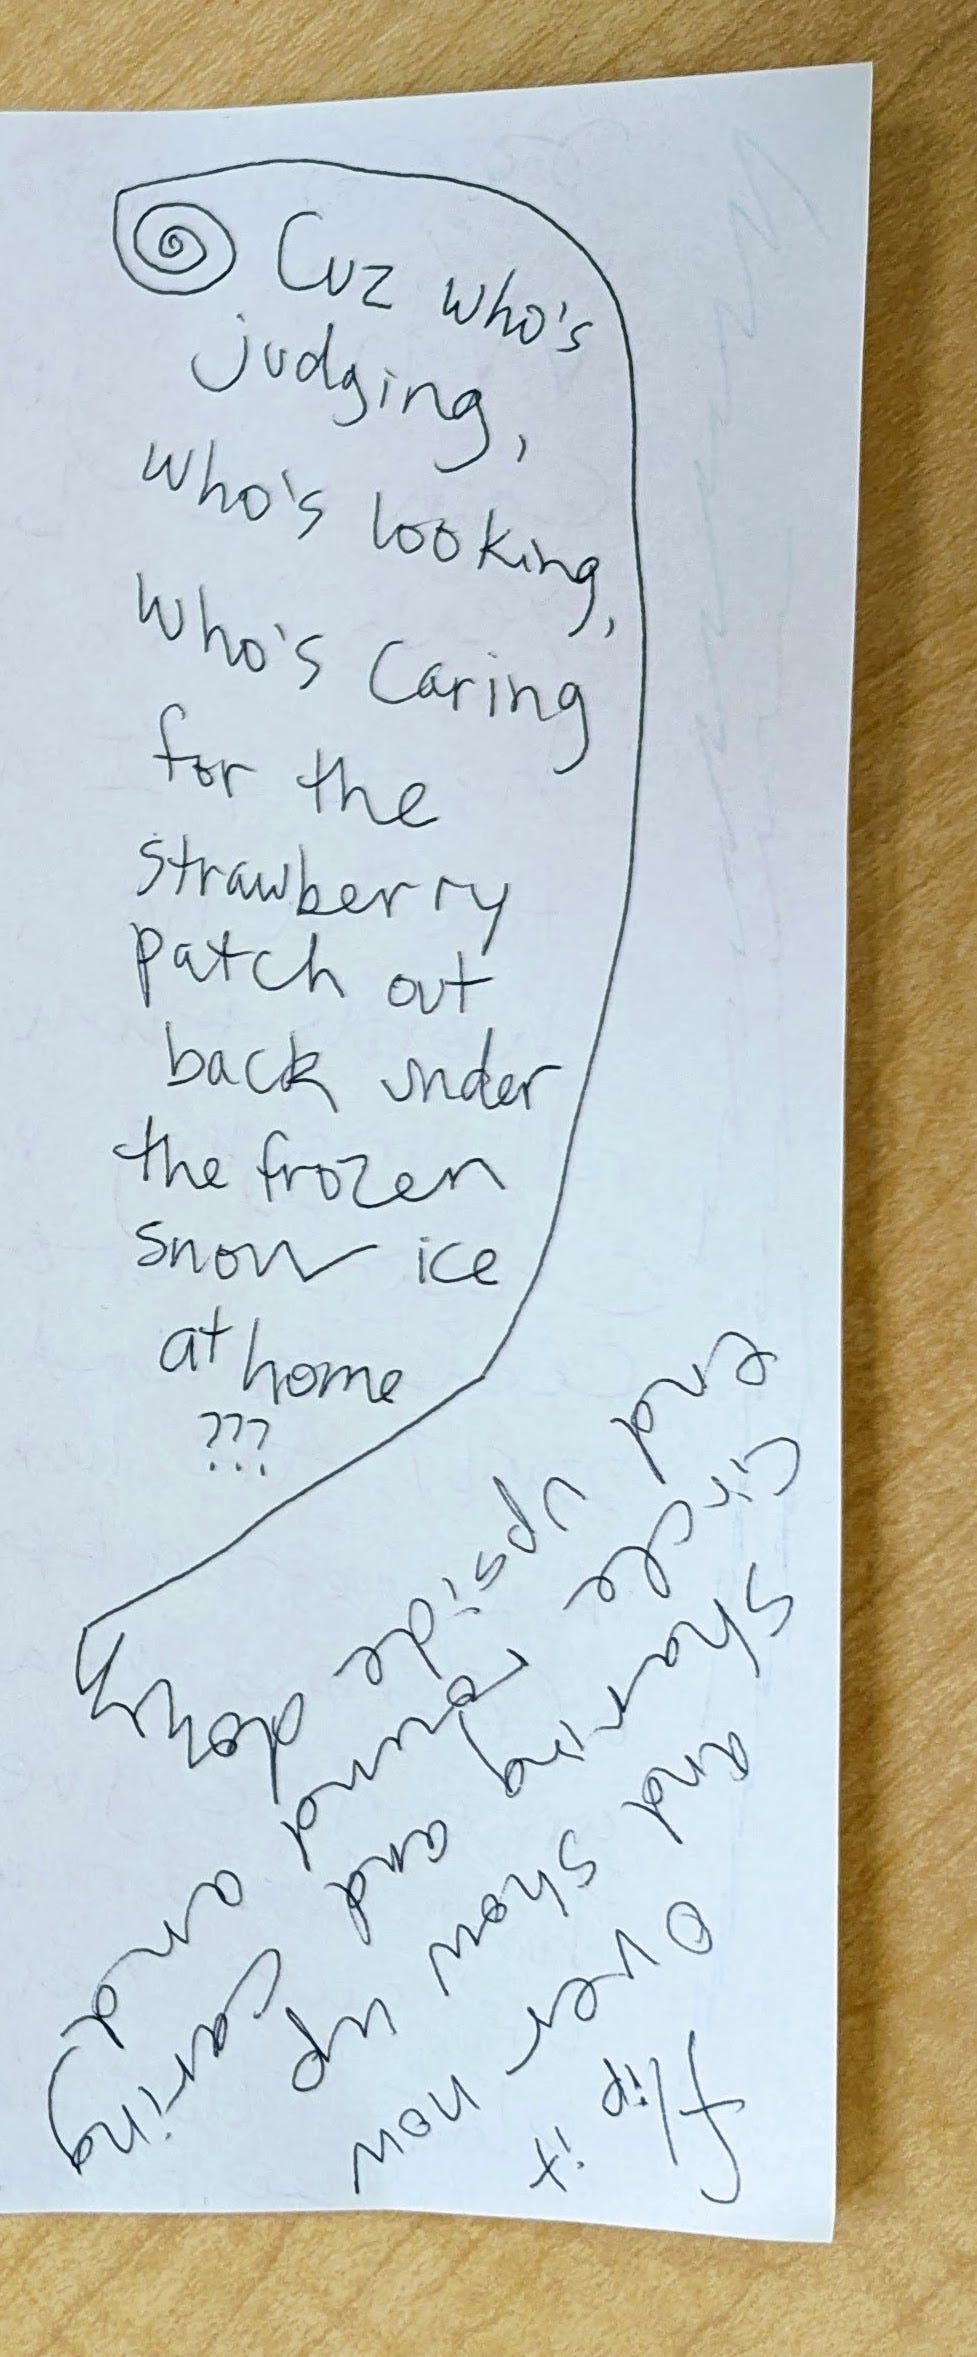 Cuz who's
judging,
who's looking,
who's caring
for the
strawberry
patch out
back under
the frozen
snow ice
at home
???
flip it
over now
and show up
sharing and caring
circle round and
end upside down